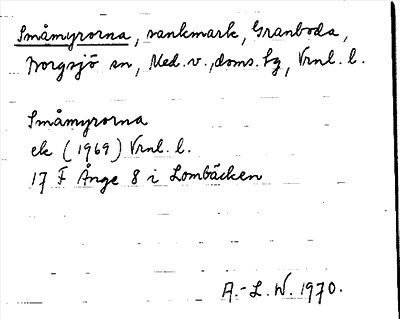 Småmyrorna, sankmark, Granboda,
Borgsjö sn, Med. v., doms. sg, Vrnl. l.
Småmyrorna
ek (1969) Vrnl. l.
17 F Ånge 8 i Lombäcken
A.-L. W. 1970.